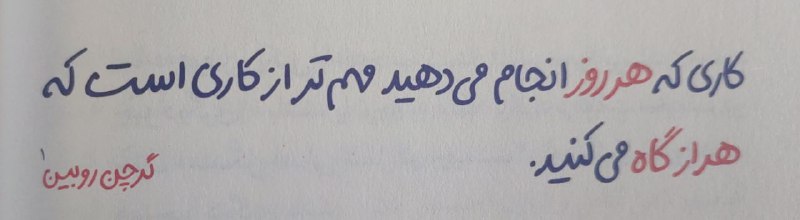 کاری که هر روز انجام می‌دهید مهم‌تر از کاری است که
هر از گاه می‌کنید.
گرچن روبین۱